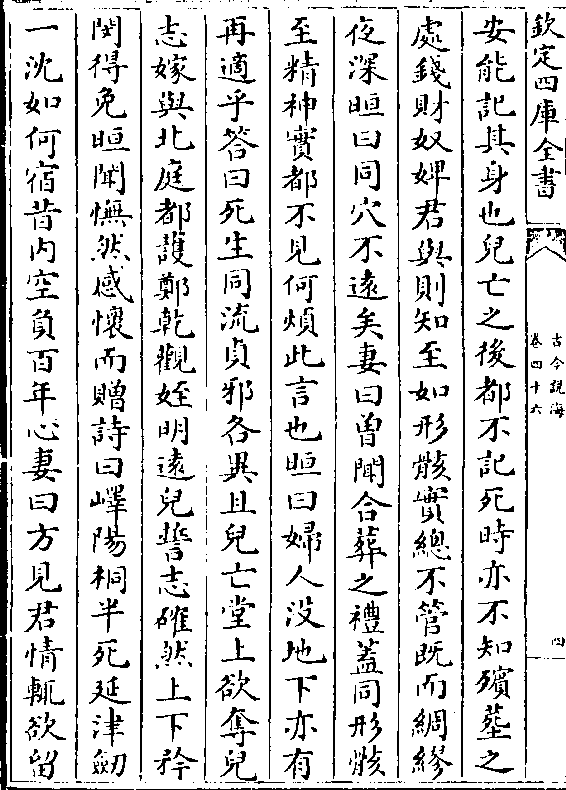 欽定四庫全書
古今說海
卷四十六
四
安能記其身也兒亡之後都不記死時亦不知殯塟之
處錢財奴婢君與則知至如形骸實總不管既而綢繆
夜深晅曰同穴不遠矣妻曰曾聞合葬之禮蓋同形骸
至精神實都不見何煩此言也晅曰婦人没地下亦有
再適乎答曰死生同流貞邪各異且兒亡堂上欲奪兒
志嫁與北庭都護鄭乾觀姪明遠兒誓志確然上下矜
閔得免晅聞憮然感懷而贈詩曰嶧陽桐半死延津劒
一沈如何宿昔内空負百年心妻曰方見君情輒欲留